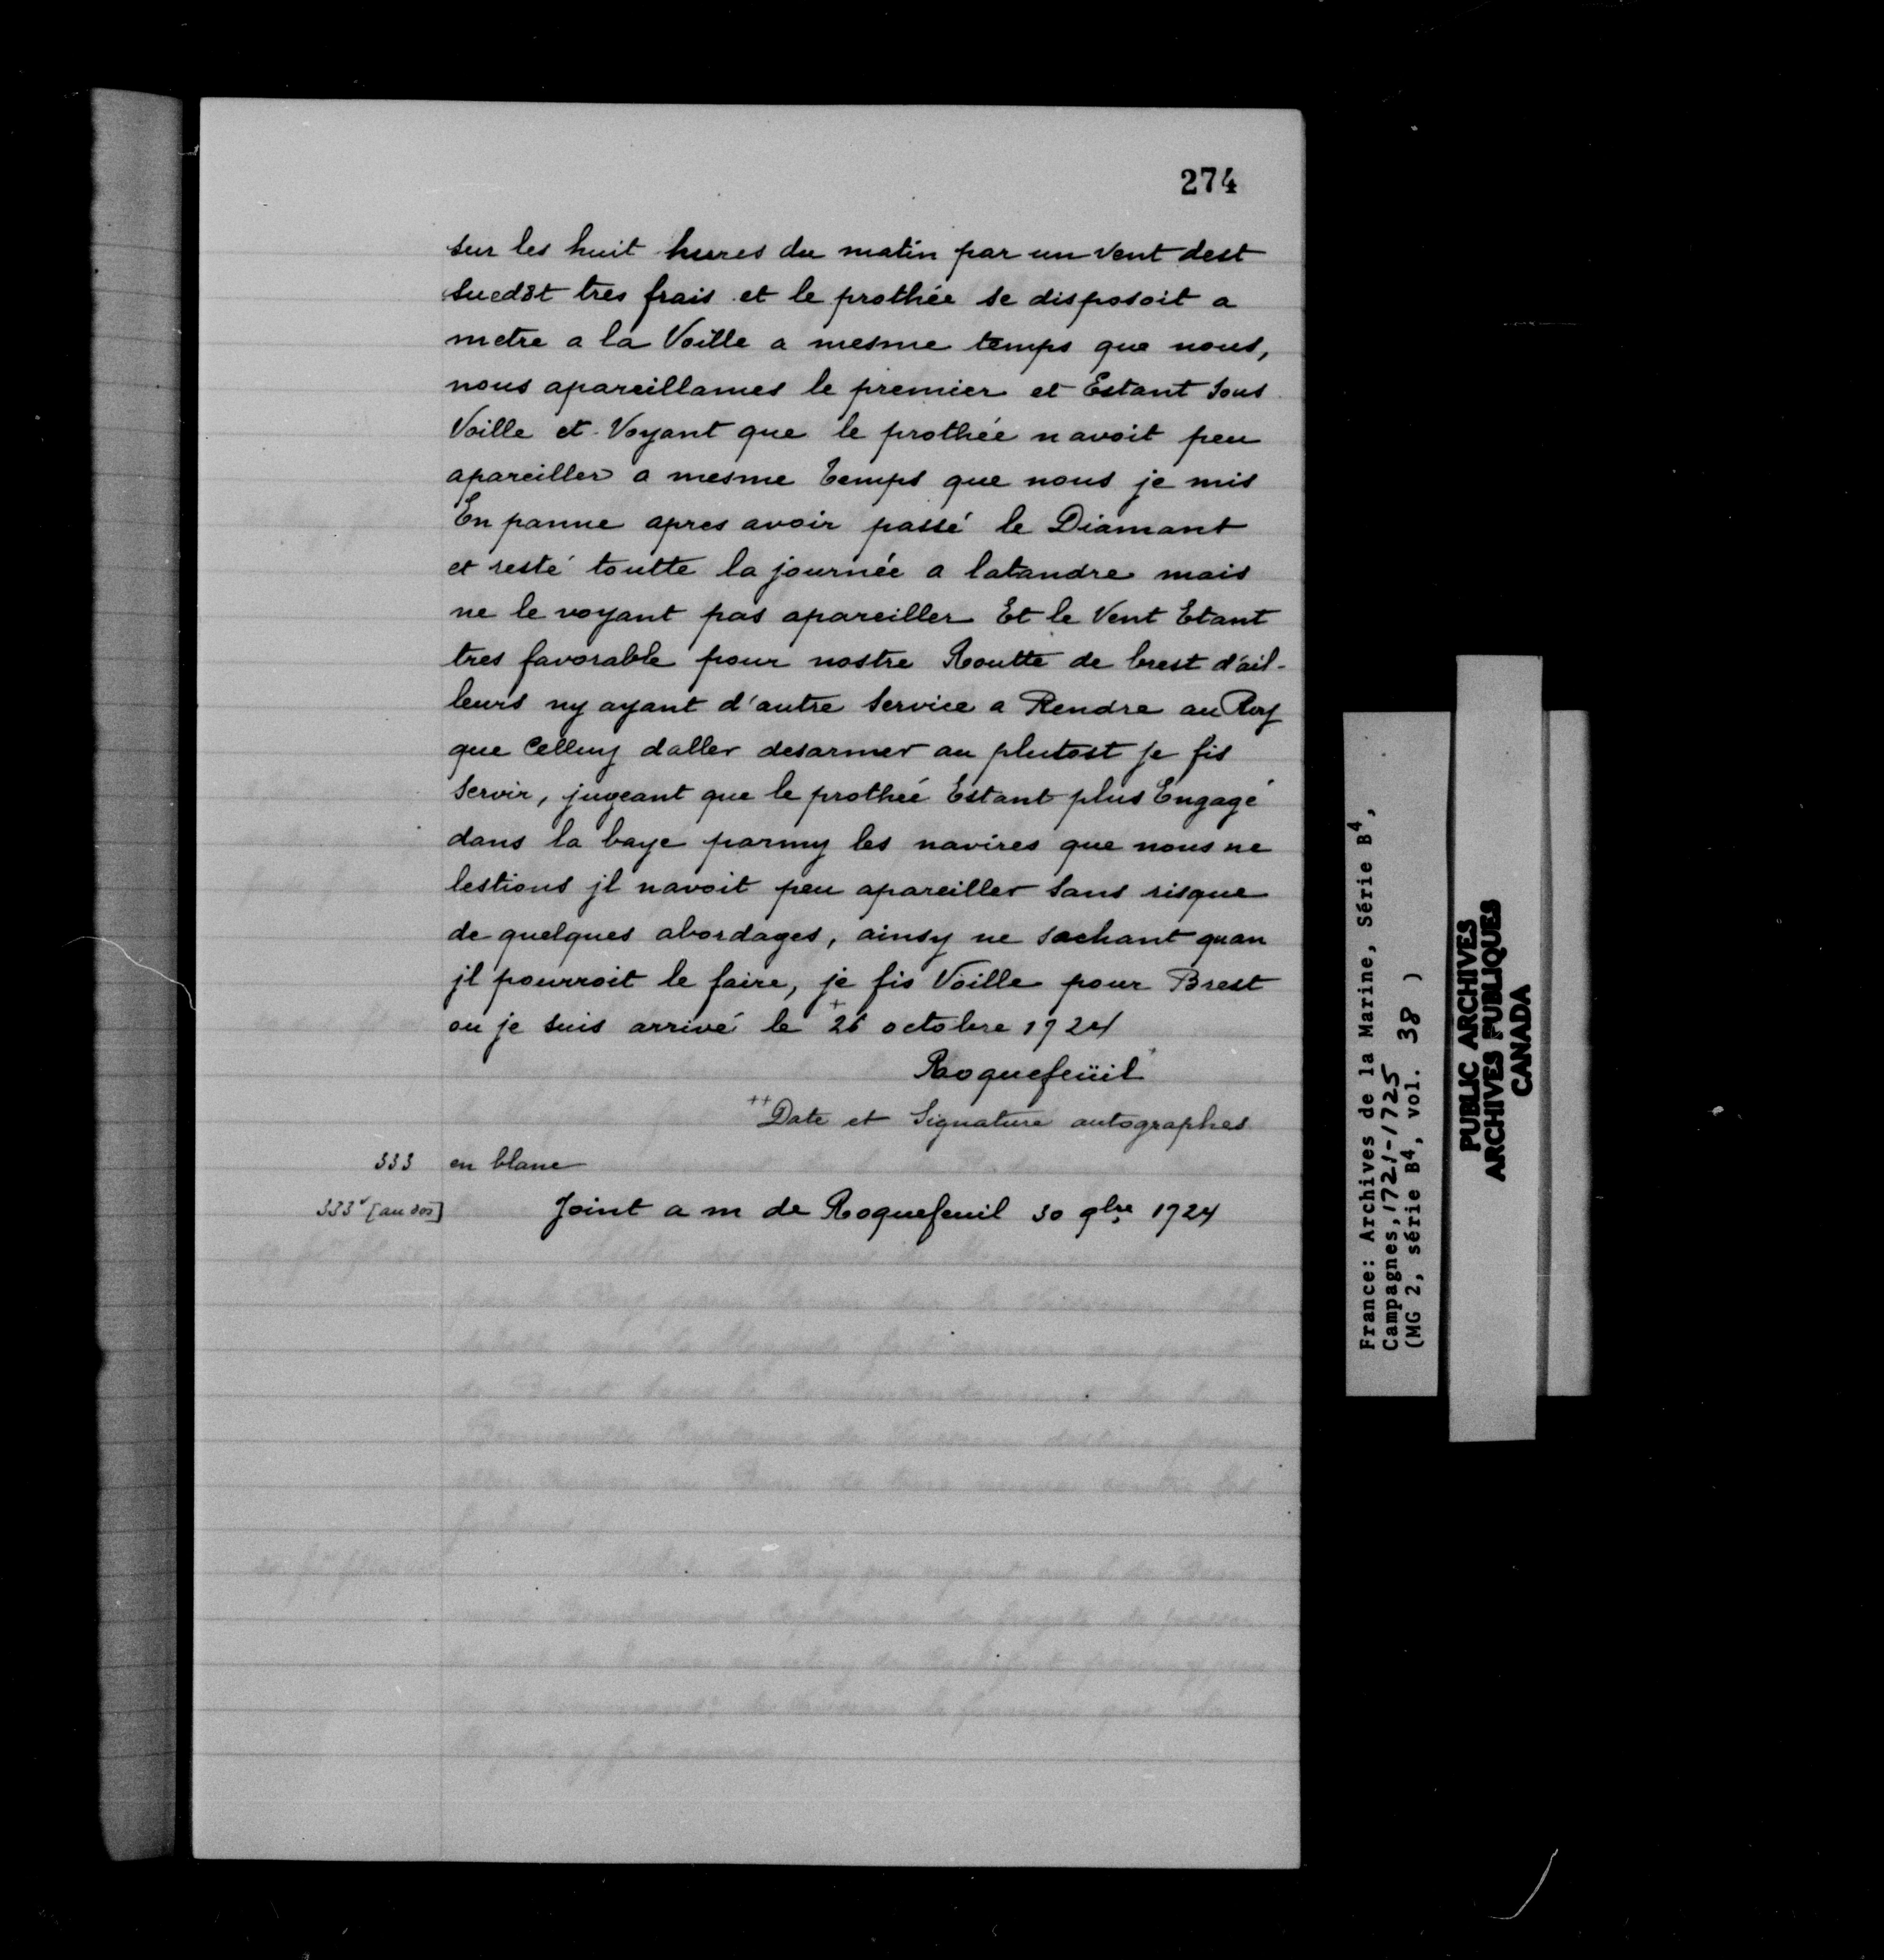 274
sur les huit hures du matin par un vent dest
suedst tres frais et le prothée se disposoit a
metre a la Voille a mesme temps que nous,
nous apareillames le premier et Estant sous
Voille et Voyant que le prothée n avoit peu
apareiller a mesme temps que nous je mis
En panne apres avoir passé le Diamant
et resté toutte la journée a latandre mais
ne le voyant pas apareiller Et le Vent Etant
tres favorable pour nostre Routte de brest d'ail-
leurs ny ayant d'autre service a Rendre au Roy
que Celluy daller desarmer au plutost je fis
servir, jugeant que le protheé Estant plus Engagé
dans la baye parmy les navires que nous ne
lestions jl navoit peu apareiller sans risque
de quelques abordages, ainsy ne sachant quan
jl pourroit le faire, je fis Voille pour Brest
ou je suis arrivé le + 26 octobre 1724
Roquefeüil +
++ Date et Signature autographes
333 en blanc
333v [au dos] Joint a m de Roquefeuil 30 9bre 1724
France: Archives de la Marine, Série B4,
Campagnes, 1721-1725
(MG 2, série B4, vol. 38 )
PUBLIC ARCHIVES
ARCHIVES PUBLIQUES
CANADA